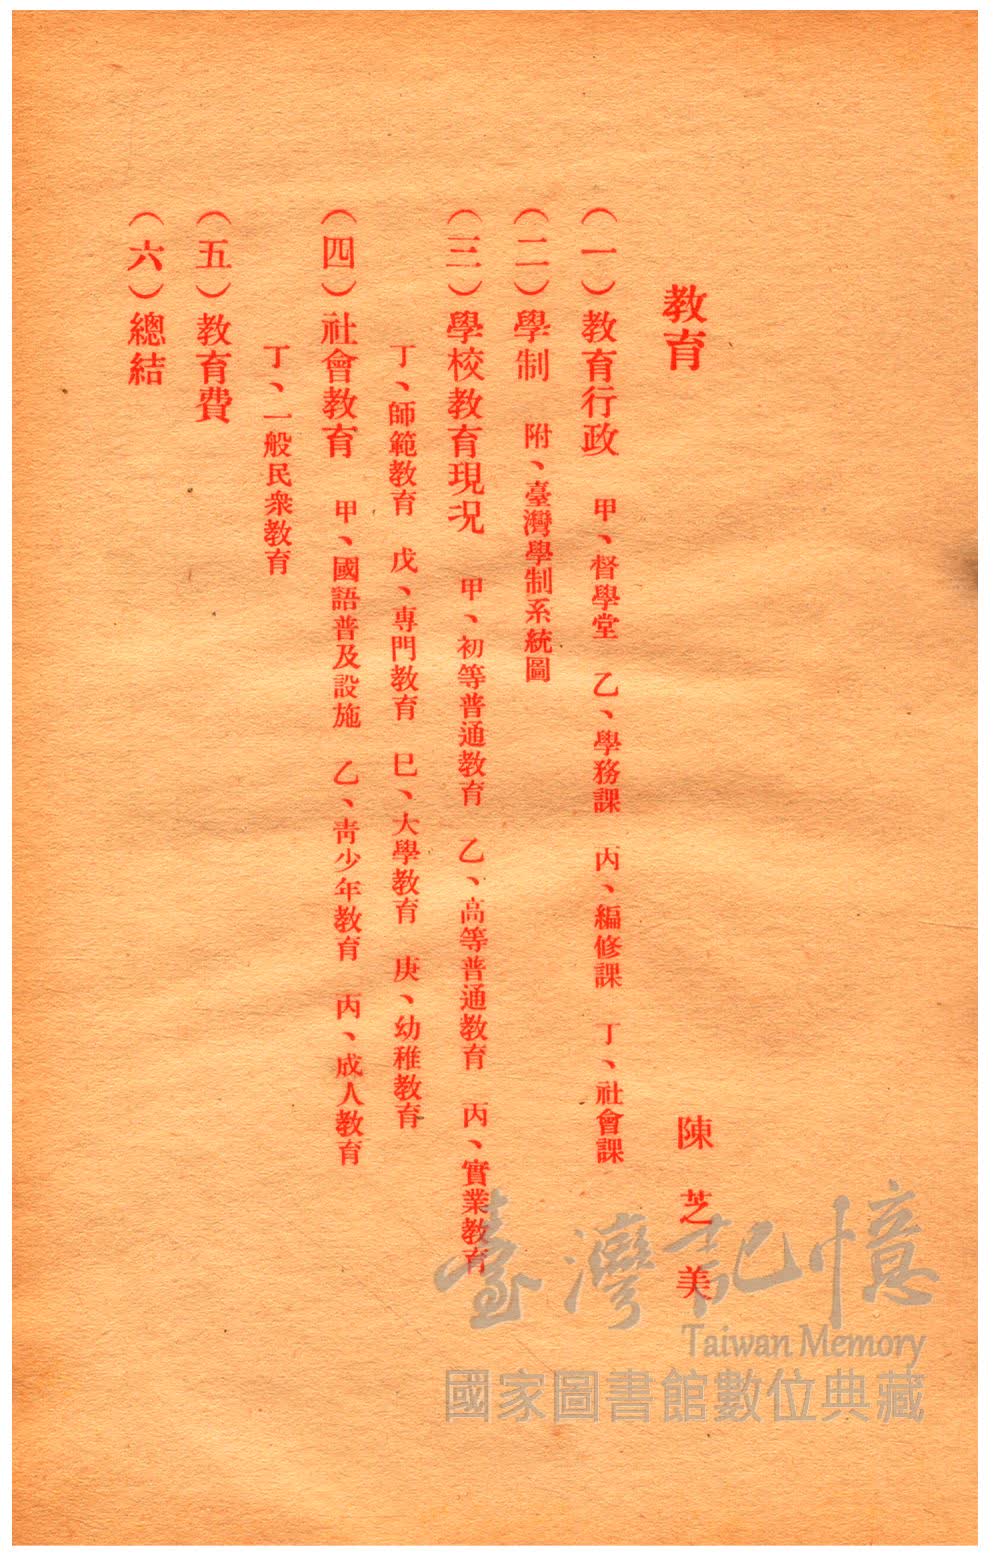 教育
陳芝美
（一）教育行政　甲、督學堂　乙、學務課　丙、編修課　丁、社會課
（二）學制　附、臺灣學制系統圖
（三）學校教育現況　甲、初等普通教育　乙、高等普通教育　丙、實業教育
丁、師範教育　戊、專門教育　巳、大學教育　庚、幼稚教育
（四）社會教育　甲、國語普及設施　乙、靑少年教育　丙、成人教育
丁、一般民衆教育
（五）教育費
（六）總結
臺灣記憶
Taiwan Memory
國家圖書館數位典藏